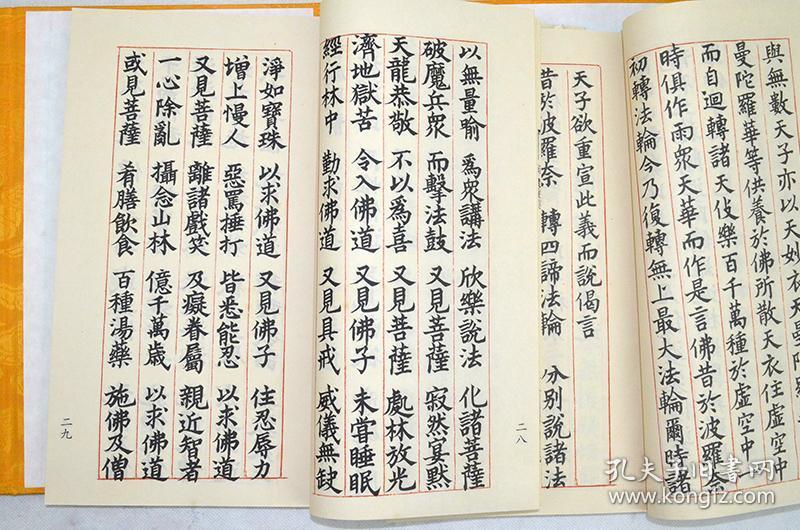 與無數天子亦以天妙衣天曼陀
曼陀羅華等供養於佛所散天衣住虛空中
而自迴轉諸天伎樂百千萬種於虛空中
時俱作雨眾天華而作是言佛昔於波羅奈
初轉法輪今乃復轉無上最大法輪爾時諸
天子欲重宣此義而說偈言
昔於波羅奈 轉四諦法輪 分別說諸法
以無量喻 爲眾講法 欣樂說法 化諸菩薩
破魔兵眾 而擊法鼓 又見菩薩 寂然宴默
天龍恭敬 不以爲喜 又見菩薩 處林放光
濟地獄苦 令入佛道 又見佛子 未嘗睡眠
經行林中 勤求佛道 又見具戒 威儀無缺
二八
淨如寶珠 以求佛道 又見佛子 住忍辱力
增上慢人 惡罵捶打 皆悉能忍 以求佛道
又見菩薩 離諸戲笑 及癡眷屬 親近智者
一心除亂 攝念山林 億千萬歲 以求佛道
或見菩薩 肴膳飲食 百種湯藥 施佛及僧
二九
孔夫子旧书网
www.kongfz.com